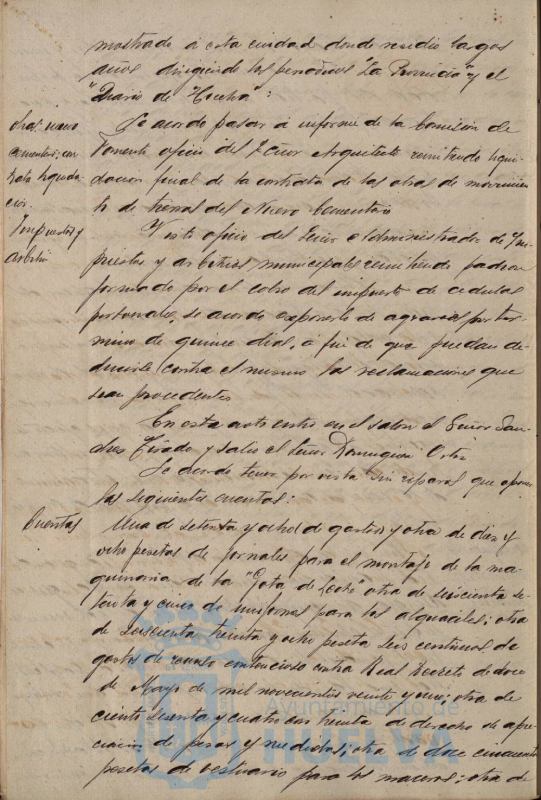 mostrado á esta ciudad donde residio largos
años dirigiendo los periodicos "La Provincia" y el
"Diario de Huelva":
Se acordo pasar á informe de la Comision de
Fomento oficio del Señor Arquitecto remitiendo liqui-
dacion final de la contrata de las obras de movimien-
to de tierras del Nuevo Cementerio
nuevo
cementerio; con
trata liquida
cion.
Impuestos y
arbitrios
Visto oficio del Señor Administrador de Im-
puestos y arbitrios municipales remitiendo padron
formado por el cobro del impuesto de cedulas
personales, se acordo exponerlo de agravios por ter-
mino de quince dias, a fin de que puedan de-
ducirse contra el mismo las reclamaciones que
sean procedentes
En este acto entro en el salon el Señor San-
ches Tirado y salio el Señor Dominguez Ortiz
Se acordo tener por vista sin reparos que oponer
las siguientes cuentas:
Cuentas
Una de setenta y ocho de gastos y otra de diez y
ocho pesetas de jornales para el montaje de la ma-
quinaria de la "Gota de Leche" otra de seiscienta se-
tenta y cinco de uniformes para los alguaciles; otra
de seiscienta treinta y ocho peseta seis centimos de
gastos de recurso contencioso contra Real Decreto de doce
de Mayo de mil novecientos veinte y uno; otra de
ciento sesenta y cuatro con treinta de derecho de apre-
ciacion de pesas y medidas; otra de doce cincuenta
pesetas de vestuario para los maceros; otra de
Ayuntamiento de
HUELVA